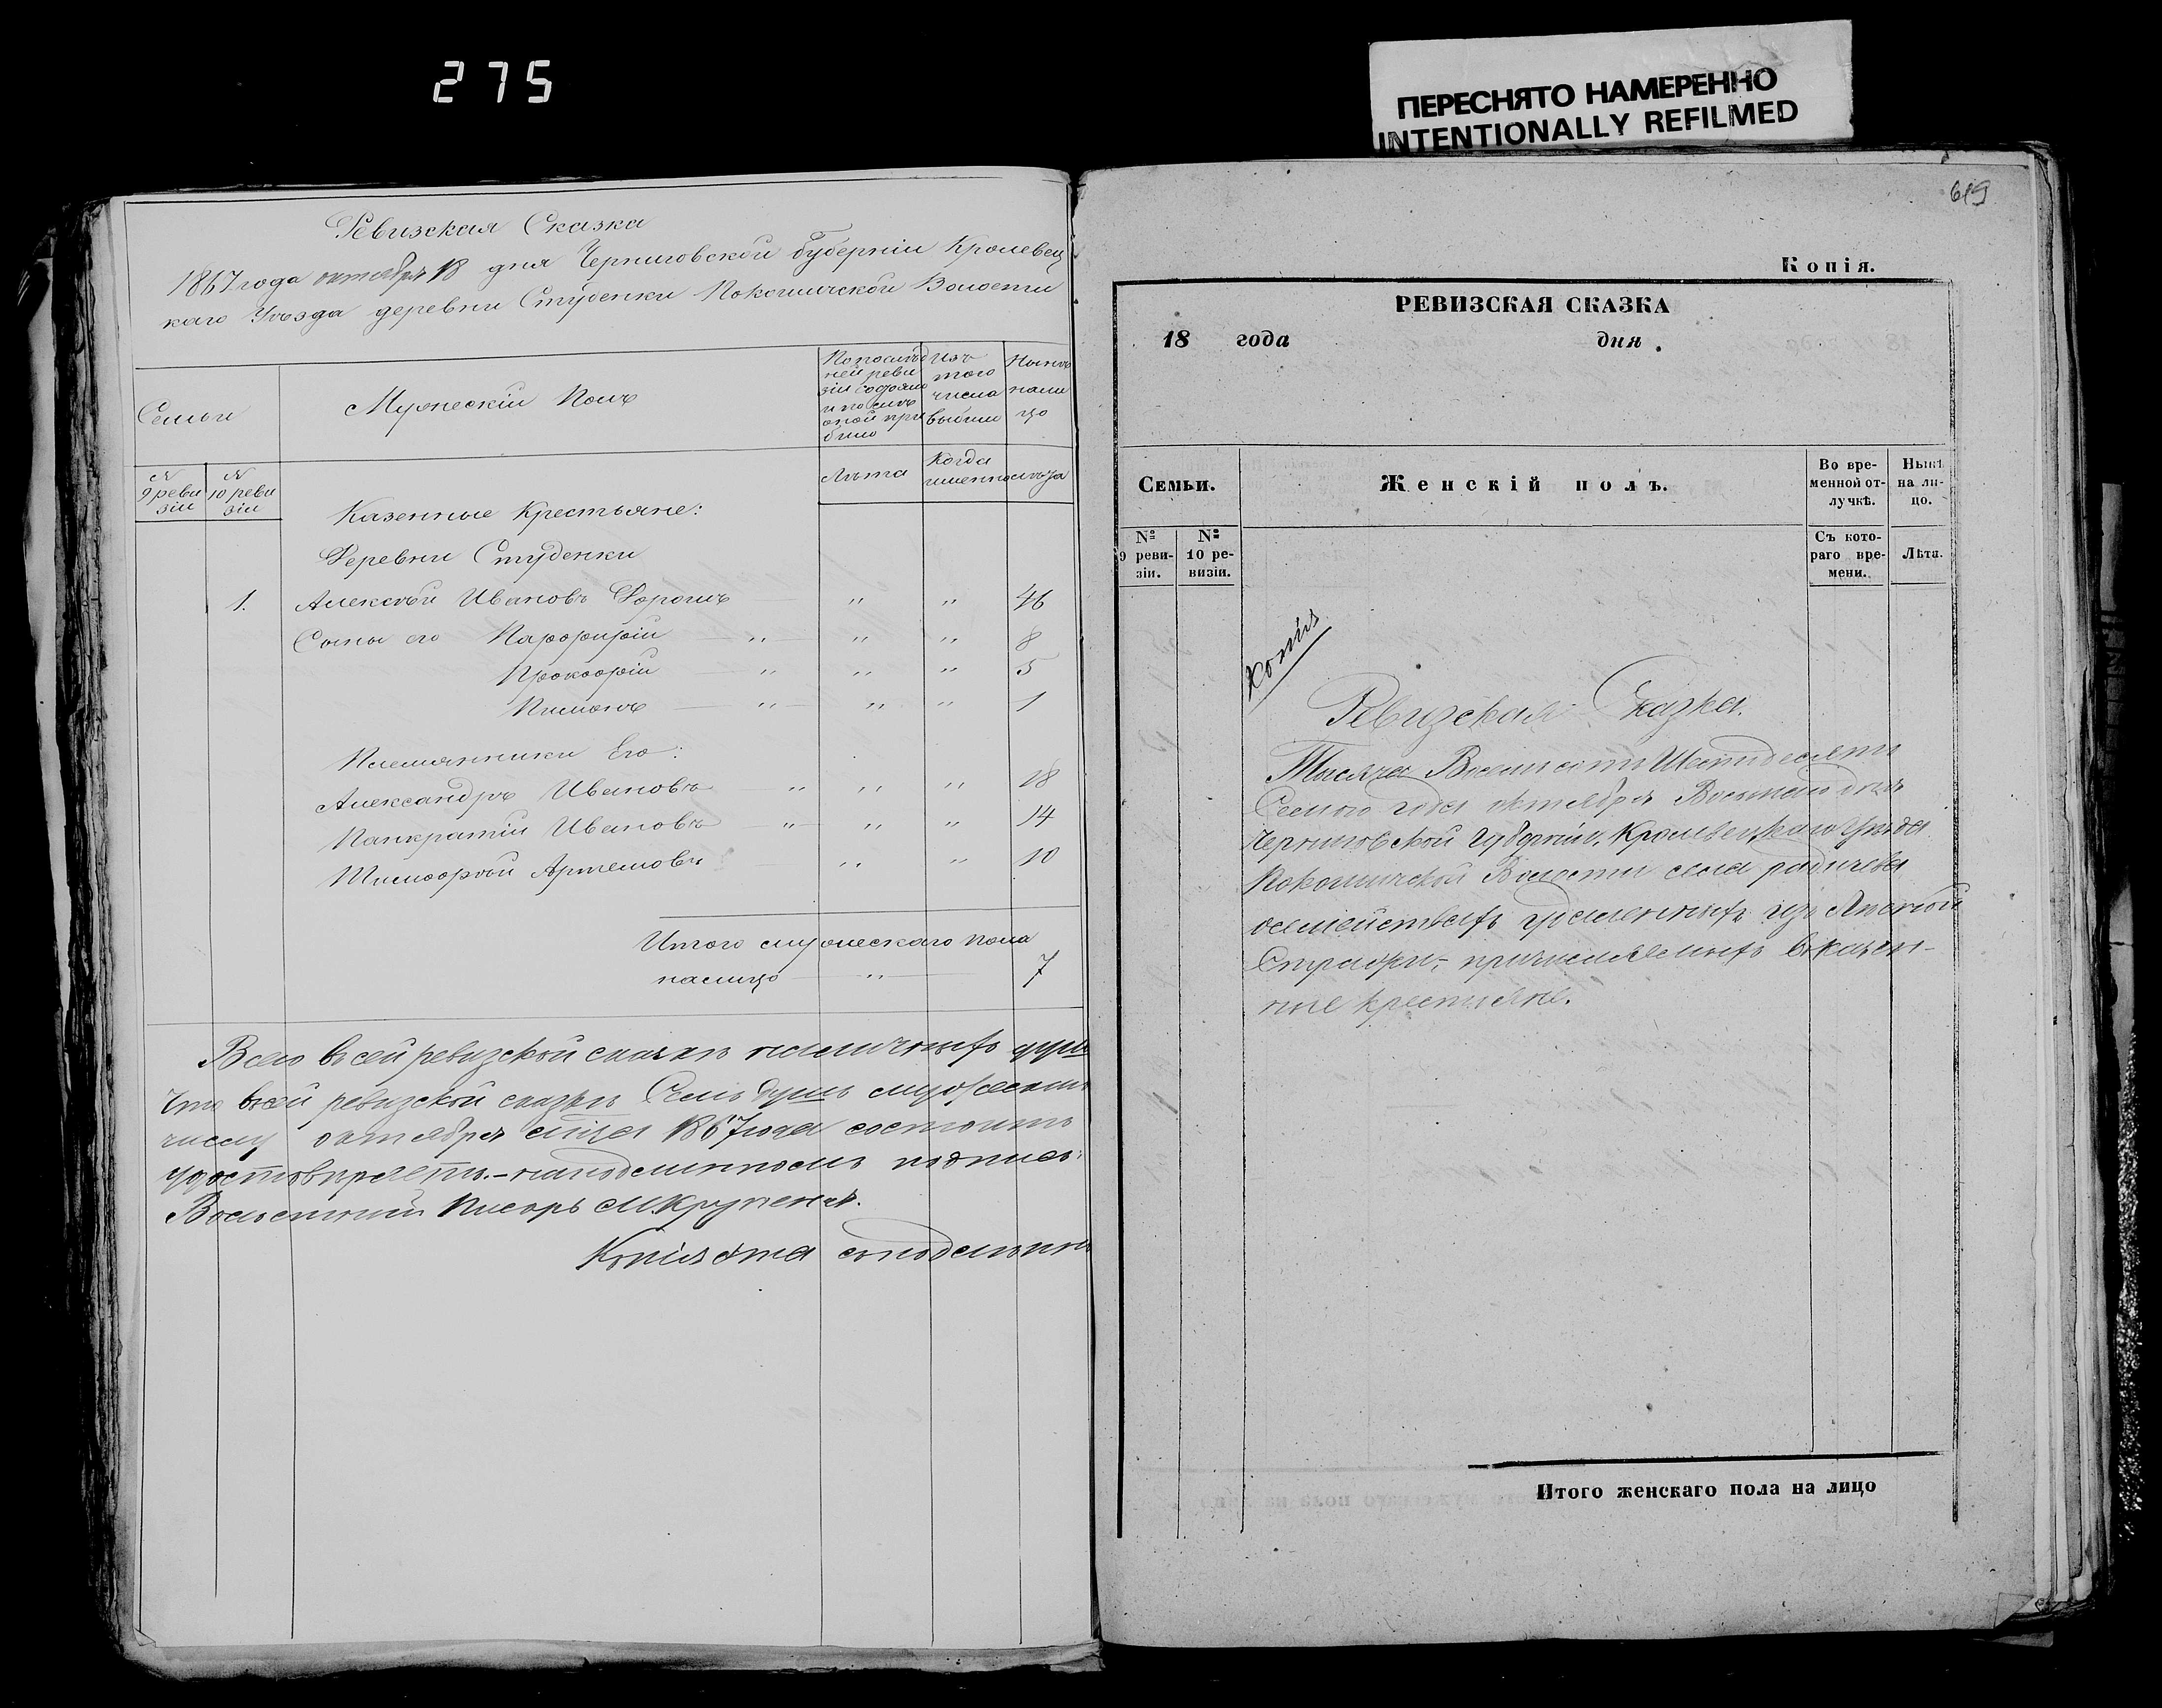 275
ПЕРЕСНЯТО НАМЕРЕННО
INTENTIONALLY REFILMED
Ревизская Сказка
1867 года октября 18 дня Черниговской Губерніи Кролевец
каго Уѣзда деревни Студенки Покошичской Волости
Семьи
Мужескій Полъ
По послѣд
ней реви
зіи состояло
и послѣ
оной при
было
Изъ
того
числа
выбыло
Нынѣ
нали
цо
№
9 реви
зіи
№
10 реви
зіи
Лѣта
Когда
именно
лѣта
Казенные Крестьяне:
Деревни Студенки
1. Алексѣй Ивановъ " " 46
Сыны его Парфирій " " " 8
Прокофій " " " 5
Пименъ " " " 1
Племянники Его:
Александръ Ивановъ " " " 18
Панкратій Ивановъ " " " 14
Тимофѣй Артемовъ " " 10
Итого мужескаго пола
налицо " 7
Всего въ сей ревизской сказкѣ наличныхъ душъ
Что въ сей ревизской сказкѣ Семь душъ мужескихъ
числу октября мѣсяца 1867 года состоитъ
удостовѣряетъ.- на подлинномъ подписа:
Волостной Писарь М. Крупеня.
Копія ѳта съ подлинною
619
Копія.
РЕВИЗСКАЯ СКАЗКА
18 года дня .
Семьи.
Женскій полъ.
Во вре-
менной от-
лучкѣ.
Нынѣ
на ли-
цо.
№
9 реви-
зіи.
№
10 ре-
визіи.
Съ кото-
раго вре-
мени.
Лѣта.
Копия
Ревизская Сказка.
Тысяча Восемьсотъ Шестьдесятъ
Семого года октября дня
Черниговской Губерніи, Кролевецкаго Уѣзда
Покошичской Волости села Радичева
семействахъ уволенныхъ изъ Лѣсной
Стражи, причисляемыхъ въ казен-
ные крестьяне.
Итого женскаго пола на лицо